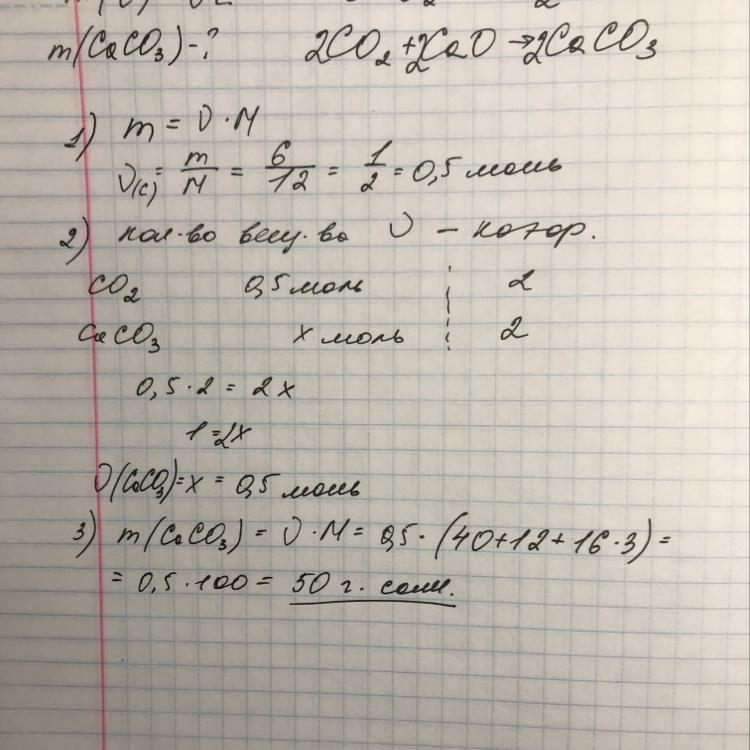 m(CaCO₃)-? 2CO₂+2CaO→2CaCO₃
1) m = ν·M
ν(c) = m/M = 6/12 = 1/2 = 0,5 моль
2) кол-во вещ-ва ν —
CO₂ 0,5 моль 2
CaCO₃ x моль 2
0,5·2 = 2x
1=2x
ν(CaCO₃)=x = 0,5 моль
3) m(CaCO₃) = ν·M = 0,5·(40+12+16·3) =
= 0,5·100 = 50 г. соли.